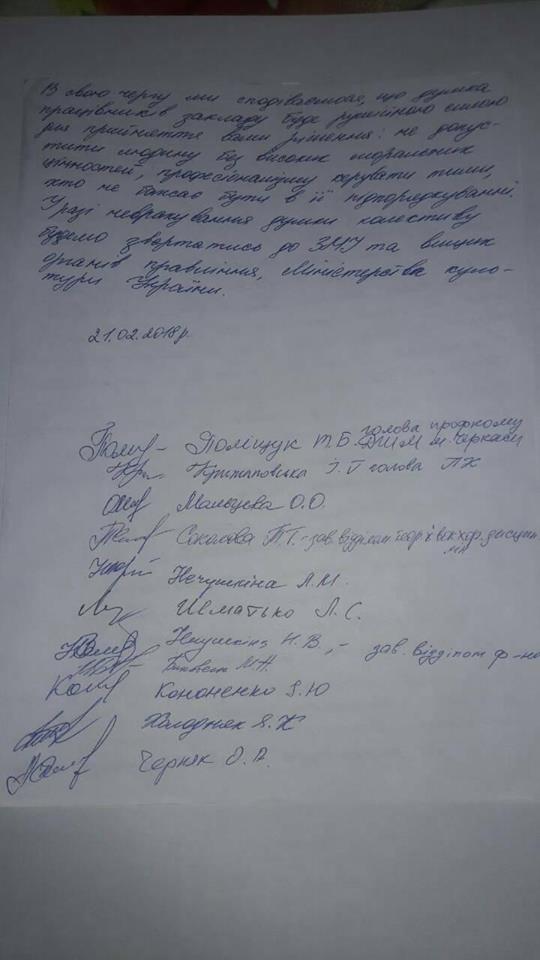 В свою чергу ми сподіваємося, що думка
працівників закладу буде рушійною силою
для прийняття вами рішення: не допус-
тити людину без високих моральних
цінностей, професіоналізму керувати тими,
хто не бажає бути в її підпорядкуванні.
У разі неврахування думки колективу
будемо звертатись до ЗМІ та вищих
органів правління, Міністерства куль-
тури України.
21.02.2018р.
Поліщук Т.Б. голова профкому
ДШМ м. Черкаси
І.Г голова ПК
Мальцева О.О.
Соколова Т.Г. - зав. відділом теор.
Нечушкіна Л.М.
Шматько Л.С.
Н.В., - зав. відділом ф-но
М.Н.
Кононенко І.Ю
Холодняк
Черняк О.А.